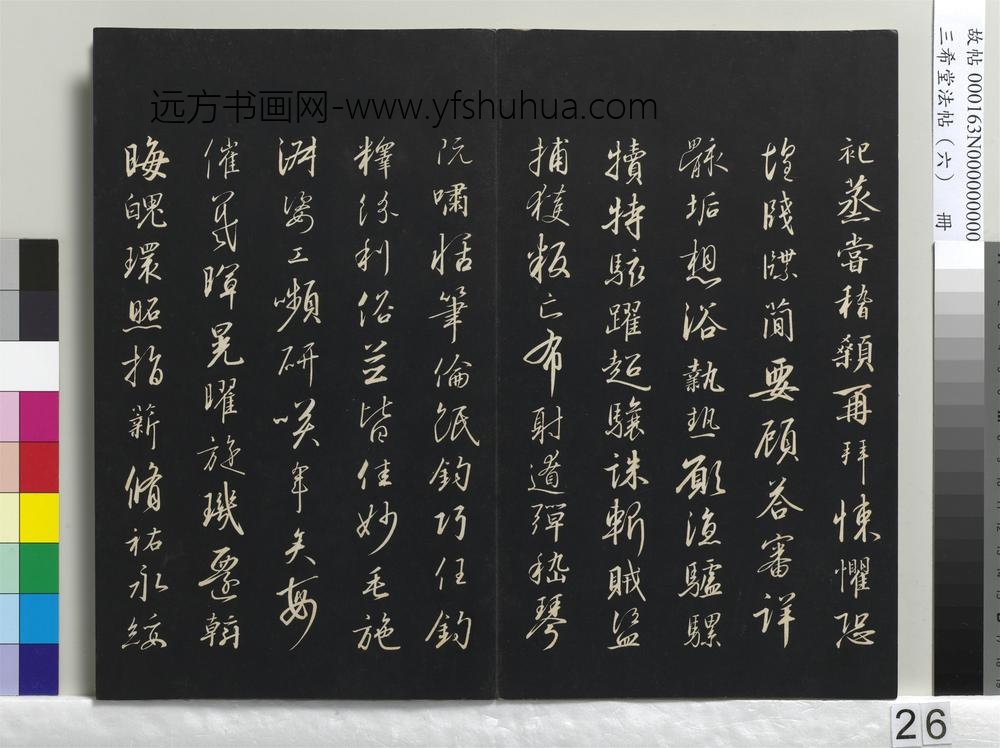 祀蒸嘗稽顙再拜悚懼恐
惶牋牒簡要顧荅審詳
骸垢想浴執熱願涼驢騾
犢特駭躍超驤誅斬賊盜
捕獲叛亡布射遼彈嵇琴
阮嘯恬筆倫紙鈞巧任鈞
釋紛利俗並皆佳妙毛施
淑姿工嚬研咲年矢每
催羲暉晃曜旋璣懸斡
晦魄環照指薪脩祐永綏
远方书画网-www.yfshuhua.com
故帖 000163N000000000
三希堂法帖（六） 冊
26